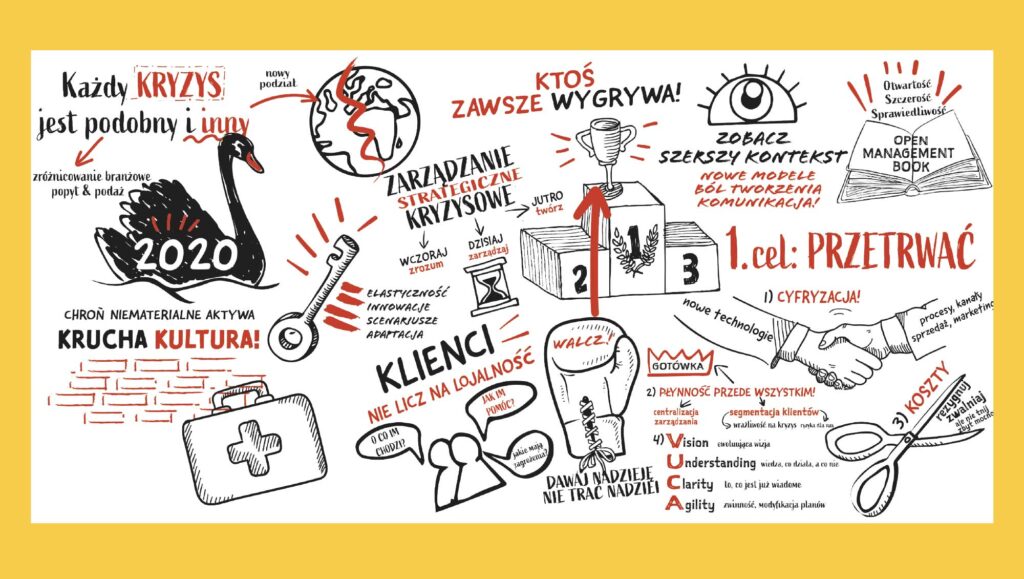 Każdy KRYZYS
jest podobny i inny
zróżnicowanie branżowe
popyt & podaż
2020
nowy
podział
CHROŃ NIEMATERIALNE AKTYWA
KRUCHA KULTURA!
ZARZĄDZANIE
STRATEGICZNE
KRYZYSOWE
WCZORAJ
zrozum
DZISIAJ
zarządzaj
JUTRO
twórz
ELASTYCZNOŚĆ
INNOWACJE
SCENARIUSZE
ADAPTACJA
KTOŚ
ZAWSZE WYGRYWA!
1
2
3
WALCZ!
DAWAJ NADZIEJĘ
NIE TRAĆ NADZIEI
KLIENCI
NIE LICZ NA LOJALNOŚĆ
O CO IM
CHODZI?
JAK IM
POMÓC?
jakie mają
zagrożenia?
ZOBACZ
SZERSZY KONTEKST
NOWE MODELE
BÓL TWORZENIA
KOMUNIKACJA!
Otwartość
Szczerość
Sprawiedliwość
OPEN
MANAGEMENT
BOOK
1.cel: PRZETRWAĆ
1) CYFRYZACJA!
nowe technologie
procesy, kanały
sprzedaż, marketing
GOTÓWKA
2) PŁYNNOŚĆ PRZEDE WSZYSTKIM!
centralizacja
zarządzania
segmentacja klientów
wrażliwość na kryzys
3) KOSZTY
rezygnuj
zwalniaj
ale nie tnij
zbyt mocno
4) Vision ewoluująca wizja
Understanding wiedza, co działa, a co nie
Clarity to, co jest już wiadome
Agility zwinność, modyfikacja planów